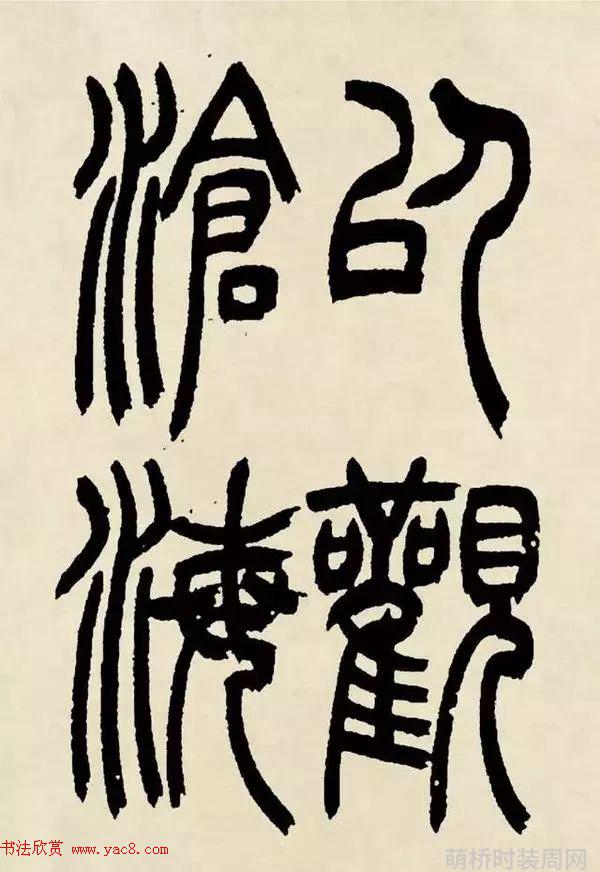 以觀
滄海
书法欣赏 www.yac8.com
萌桥时装周网